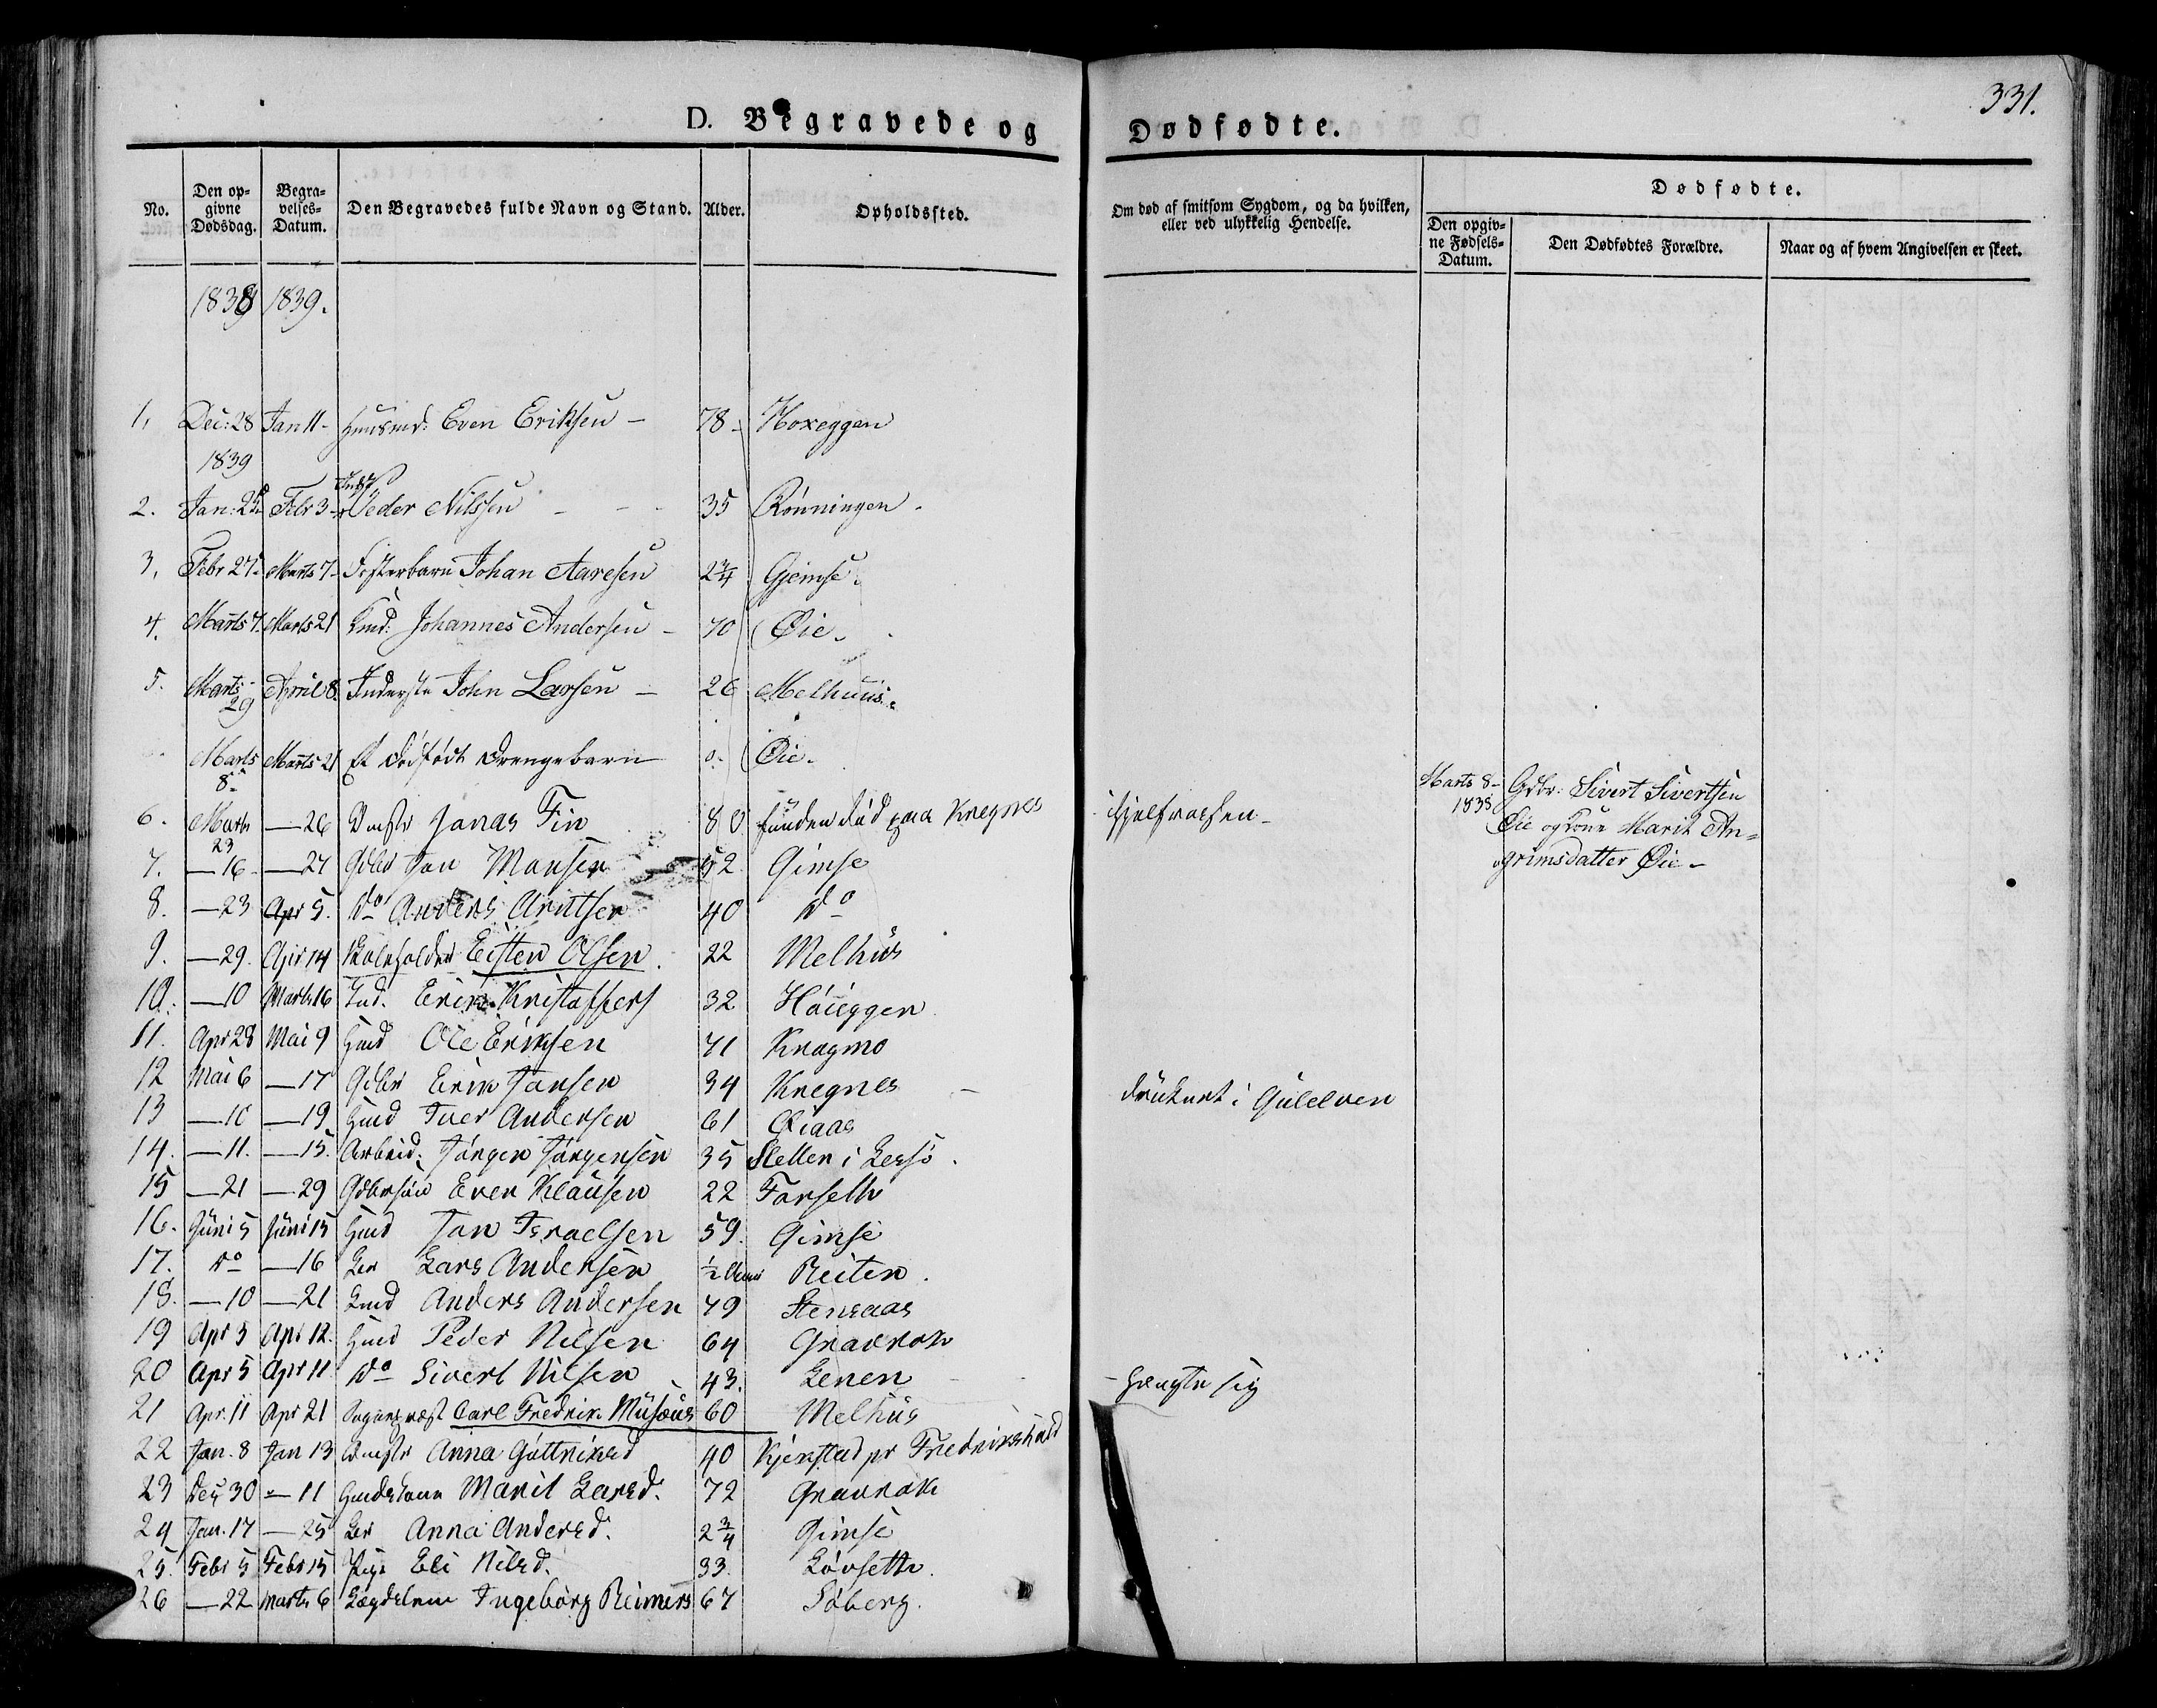 331.
D. Begravede og Dødfødte.
No. Den opgivne Dødsdag. Begravelses-Datum. Den Begravedes fulde Navn og Stand. Alder. Opholdssted. Om død af smitsom Sygdom, og da hvilken, eller ved ulykkelig Hendelse. Dødfødte. Den opgivne Fødsels-Datum. Den Dødfødtes Forældre. Naar og af hvem Angivelsen er skeet.
1838 1839.
1, Dec: 28 Jan 11 - Huusmd: Even Eriksen - 78 - Hoxeggen
1839
2. Jan: 25 Febr 3 - Peder Nilssen - - - 35 Rönningen.
3, Febr 27 - Marts 7 - Fosterbarn Johan Aaresen 2¾ Gjeimse.
4. Marts 7. Marts 21 Kmd: Johannes Andersen - 70 Øie.
5. Marts 29 April 8 Inderste John Larsen - 26 Melhuus.
Marts 8 - Marts 21 Et dödfödt Drengebarn 0. Øie. Marts 8 - 1838 Gdbr: Sivert Sivertsen
Øie og Kone Marit An=
grimsdatter Øie -
6. Marts 23 — 26 Jonas Fin 80 funden död paa Kregnes ihjelfrossen -
7. — 16 - — 27 Gdbr Jon Monsen 52 Gimse
8. — 23 Apr 5. Do Anders Arntsen 40 Do
9. — 29. Apr 14 Skoleholder Eisten Olsen. 22 Melhus
10. — 10 Marts 16 Ind. Erik Kristoffers 32 Höueggen
11. Apr 28 Mai 9 Hmd Ole Eriksen 71 Kragmo
12 Mai 6 — 17 Gdbr Erik Jonsen 34 Kregnes - druknet i Gulelven
13 — 10 — 19 Hmd Iver Andersen 61 Øiaas
14. — 11. — 15. Arbeid. Jörgen Jörgensen 35 Sletten i Lessö.
15 — 21 — 29 Gdbrsön Even Klausen 22 Forseth
16. Juni 5 Juni 15 Hmd Jon Israelsen 59. Gimse
17. Do — 16 Br Lars Andersen ½ Reiten.
18. — 10 — 21 Kmd Anders Andersen 79 Stensaas
19 Apr 3 Apr 12. Hmd Peder Nilsen 64 Gravrok
20 Apr 5 Apr 11 Do Sivert Nilsen 43. Lenen - hengte sig
21 Apr. 11 Apr 21 Sogneprest Carl Fredrik Musæus 60 Melhus
22 Jan. 8 Jan 13 Anna Gottriksd 40 Kjerstad pr Fredrikshald
23 Dec 30 — 11 Gmdskone Marit Larsd. 72 Gravrok
24 Jan. 17 — 25 Br Anna Andersd. 2¾ Gimse
25. Febr 5 Febr 15 Pige Eli Nilsd. 33. Lövseth.
26 — 22 Marts 6 Lægdslem Ingeborg Reimers 67 Söberg.